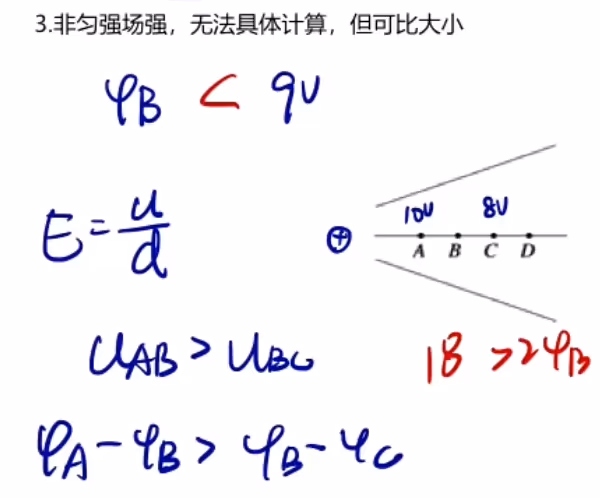 3.非匀强场强，无法具体计算，但可比大小
φB < 9V
E = u/d
⊕
10V 8V
A B C D
UAB > UBC
18 > 2φB
φA - φB > φB - φC